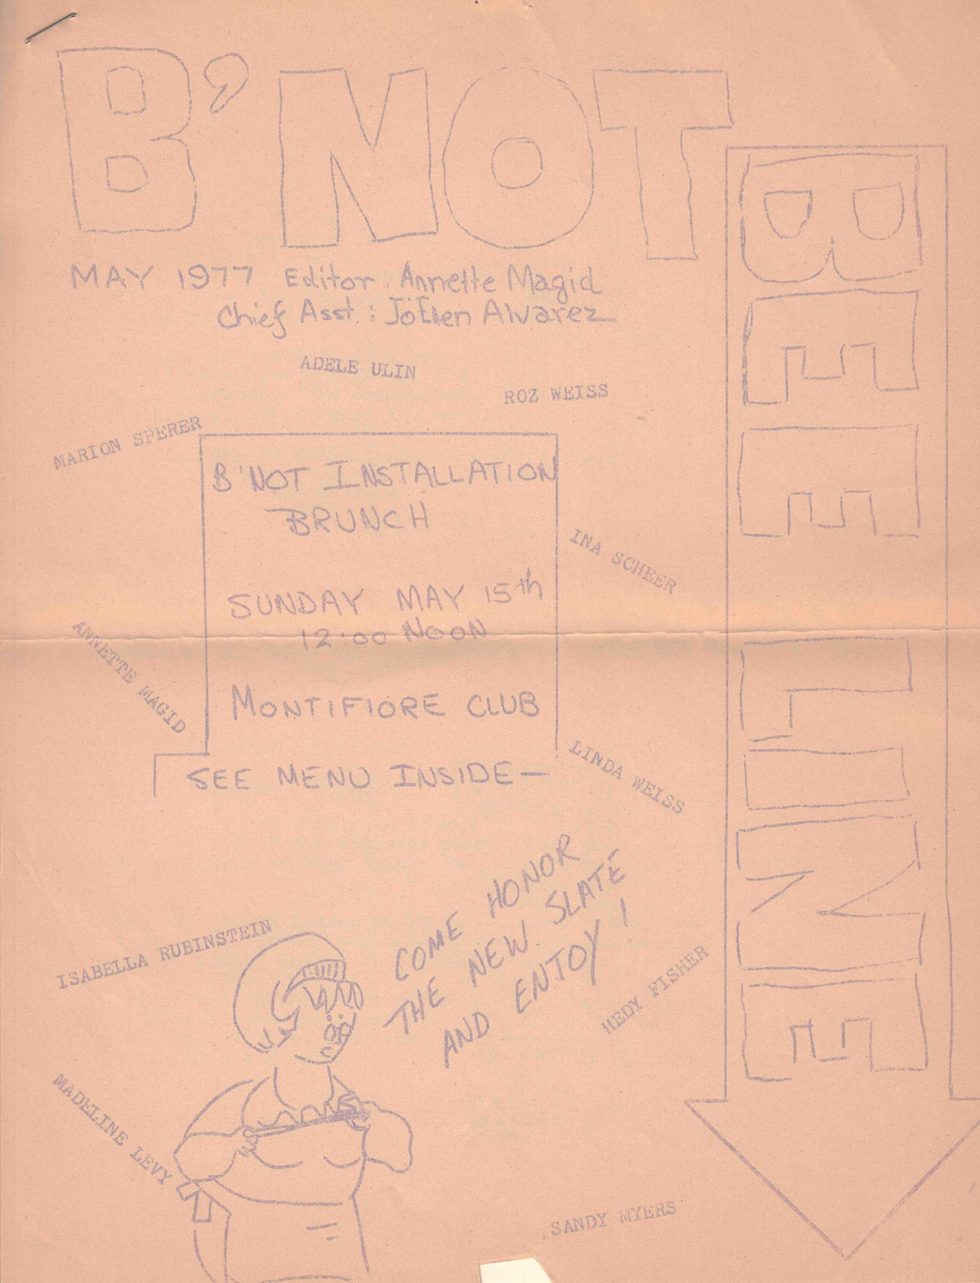 B'NOT
BEE LINE
MAY 1977 Editor: Annette Magid
Chief Asst.: JoEllen Alvarez
ADELE ULIN
ROZ WEISS
MARION SPERER
B'NOT INSTALLATION
BRUNCH
INA SCHEER
SUNDAY MAY 15th
12:00 NOON
ANNETTE MAGID
MONTIFIORE CLUB
LINDA WEISS
SEE MENU INSIDE—
COME HONOR
THE NEW SLATE
AND ENJOY!
ISABELLA RUBINSTEIN
HEDY FISHER
MADELINE LEVY
SANDY MYERS